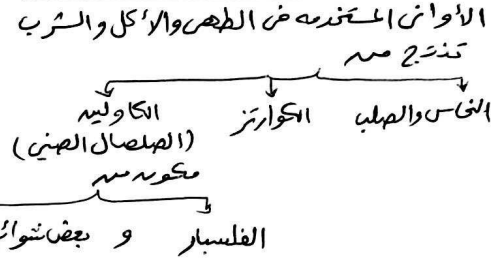 الأوانى المستخدمه فى الطهى والأكل والشرب
تنتج من
النحاس والصلب الكوارتز الكاولين
(الصلصال الصينى)
مكون من
الفلسبار و بعض شوائ